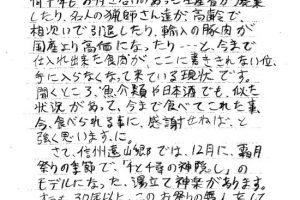 したり、名人の猟師さん達が高齢で、
相次いで引退したり、輸入の豚肉が
国産より高価になったり…と、今まで
仕入れ出来た食肉が、ここに書ききれない位、
手に入らなくなって来ている現状です。
聞くところ、魚介類や日本酒でも、似た
状況があって、今まで食べてこれた事、
今、食べられる事に、感謝せねば、と
強く思います、に。
さて、信州遠山郷では、12月に、霜月
祭りの季節で、「千と千尋の神隠し」の
モデルになった、湯立て神楽があります。